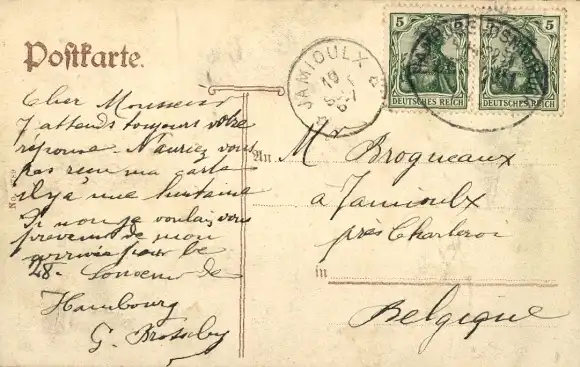 Postkarte.
5 5
DEUTSCHES REICH DEUTSCHES REICH
JAMIOULX
Cher Monsieur
J'attends toujours votre
réponse. N'auriez vous
pas reçu ma carte
il y a une huitaine
Si non je voulais vous
prévenir de mon
arrivée pour le
28. Souvenir de
Hambourg
G.
An
Mr Brogneaux
à Jamioulx
près Charleroi
in
Belgique